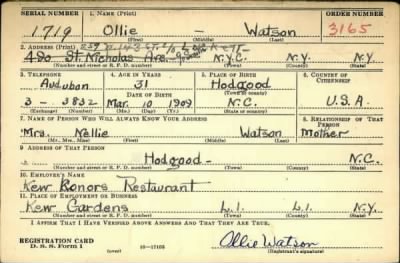 SERIAL NUMBER 1. NAME (Print) ORDER NUMBER
1719 Ollie - Watson 3165
(First) (Middle) (Last)
2. ADDRESS (Print)
480 St. Nicholas Ave. N.Y.C. N.Y. N.Y.
(Number and street or R. F. D. number) (Town) (County) (State)
3. TELEPHONE 4. AGE IN YEARS 5. PLACE OF BIRTH 6. COUNTRY OF CITIZENSHIP
Audubon 31 Hodgood
DATE OF BIRTH (Town or county)
3-3832 Mar. 10 1909 N.C. U.S.A.
(Exchange) (Number) (Mo.) (Day) (Yr.) (State or country)
7. NAME OF PERSON WHO WILL ALWAYS KNOW YOUR ADDRESS 8. RELATIONSHIP OF THAT PERSON
Mrs. Nellie Watson Mother
(Mr., Mrs., Miss) (First) (Middle) (Last)
9. ADDRESS OF THAT PERSON
Hodgood - N.C.
(Number and street or R. F. D. number) (Town) (County) (State)
10. EMPLOYER'S NAME
Kew Bonors Restaurant
11. PLACE OF EMPLOYMENT OR BUSINESS
Kew Gardens L.I. L.I. N.Y.
(Number and street or R. F. D. number) (Town) (County) (State)
I AFFIRM THAT I HAVE VERIFIED ABOVE ANSWERS AND THAT THEY ARE TRUE.
REGISTRATION CARD
D. S. S. Form 1 (over) 16-17105 Ollie Watson
(Registrant's signature)